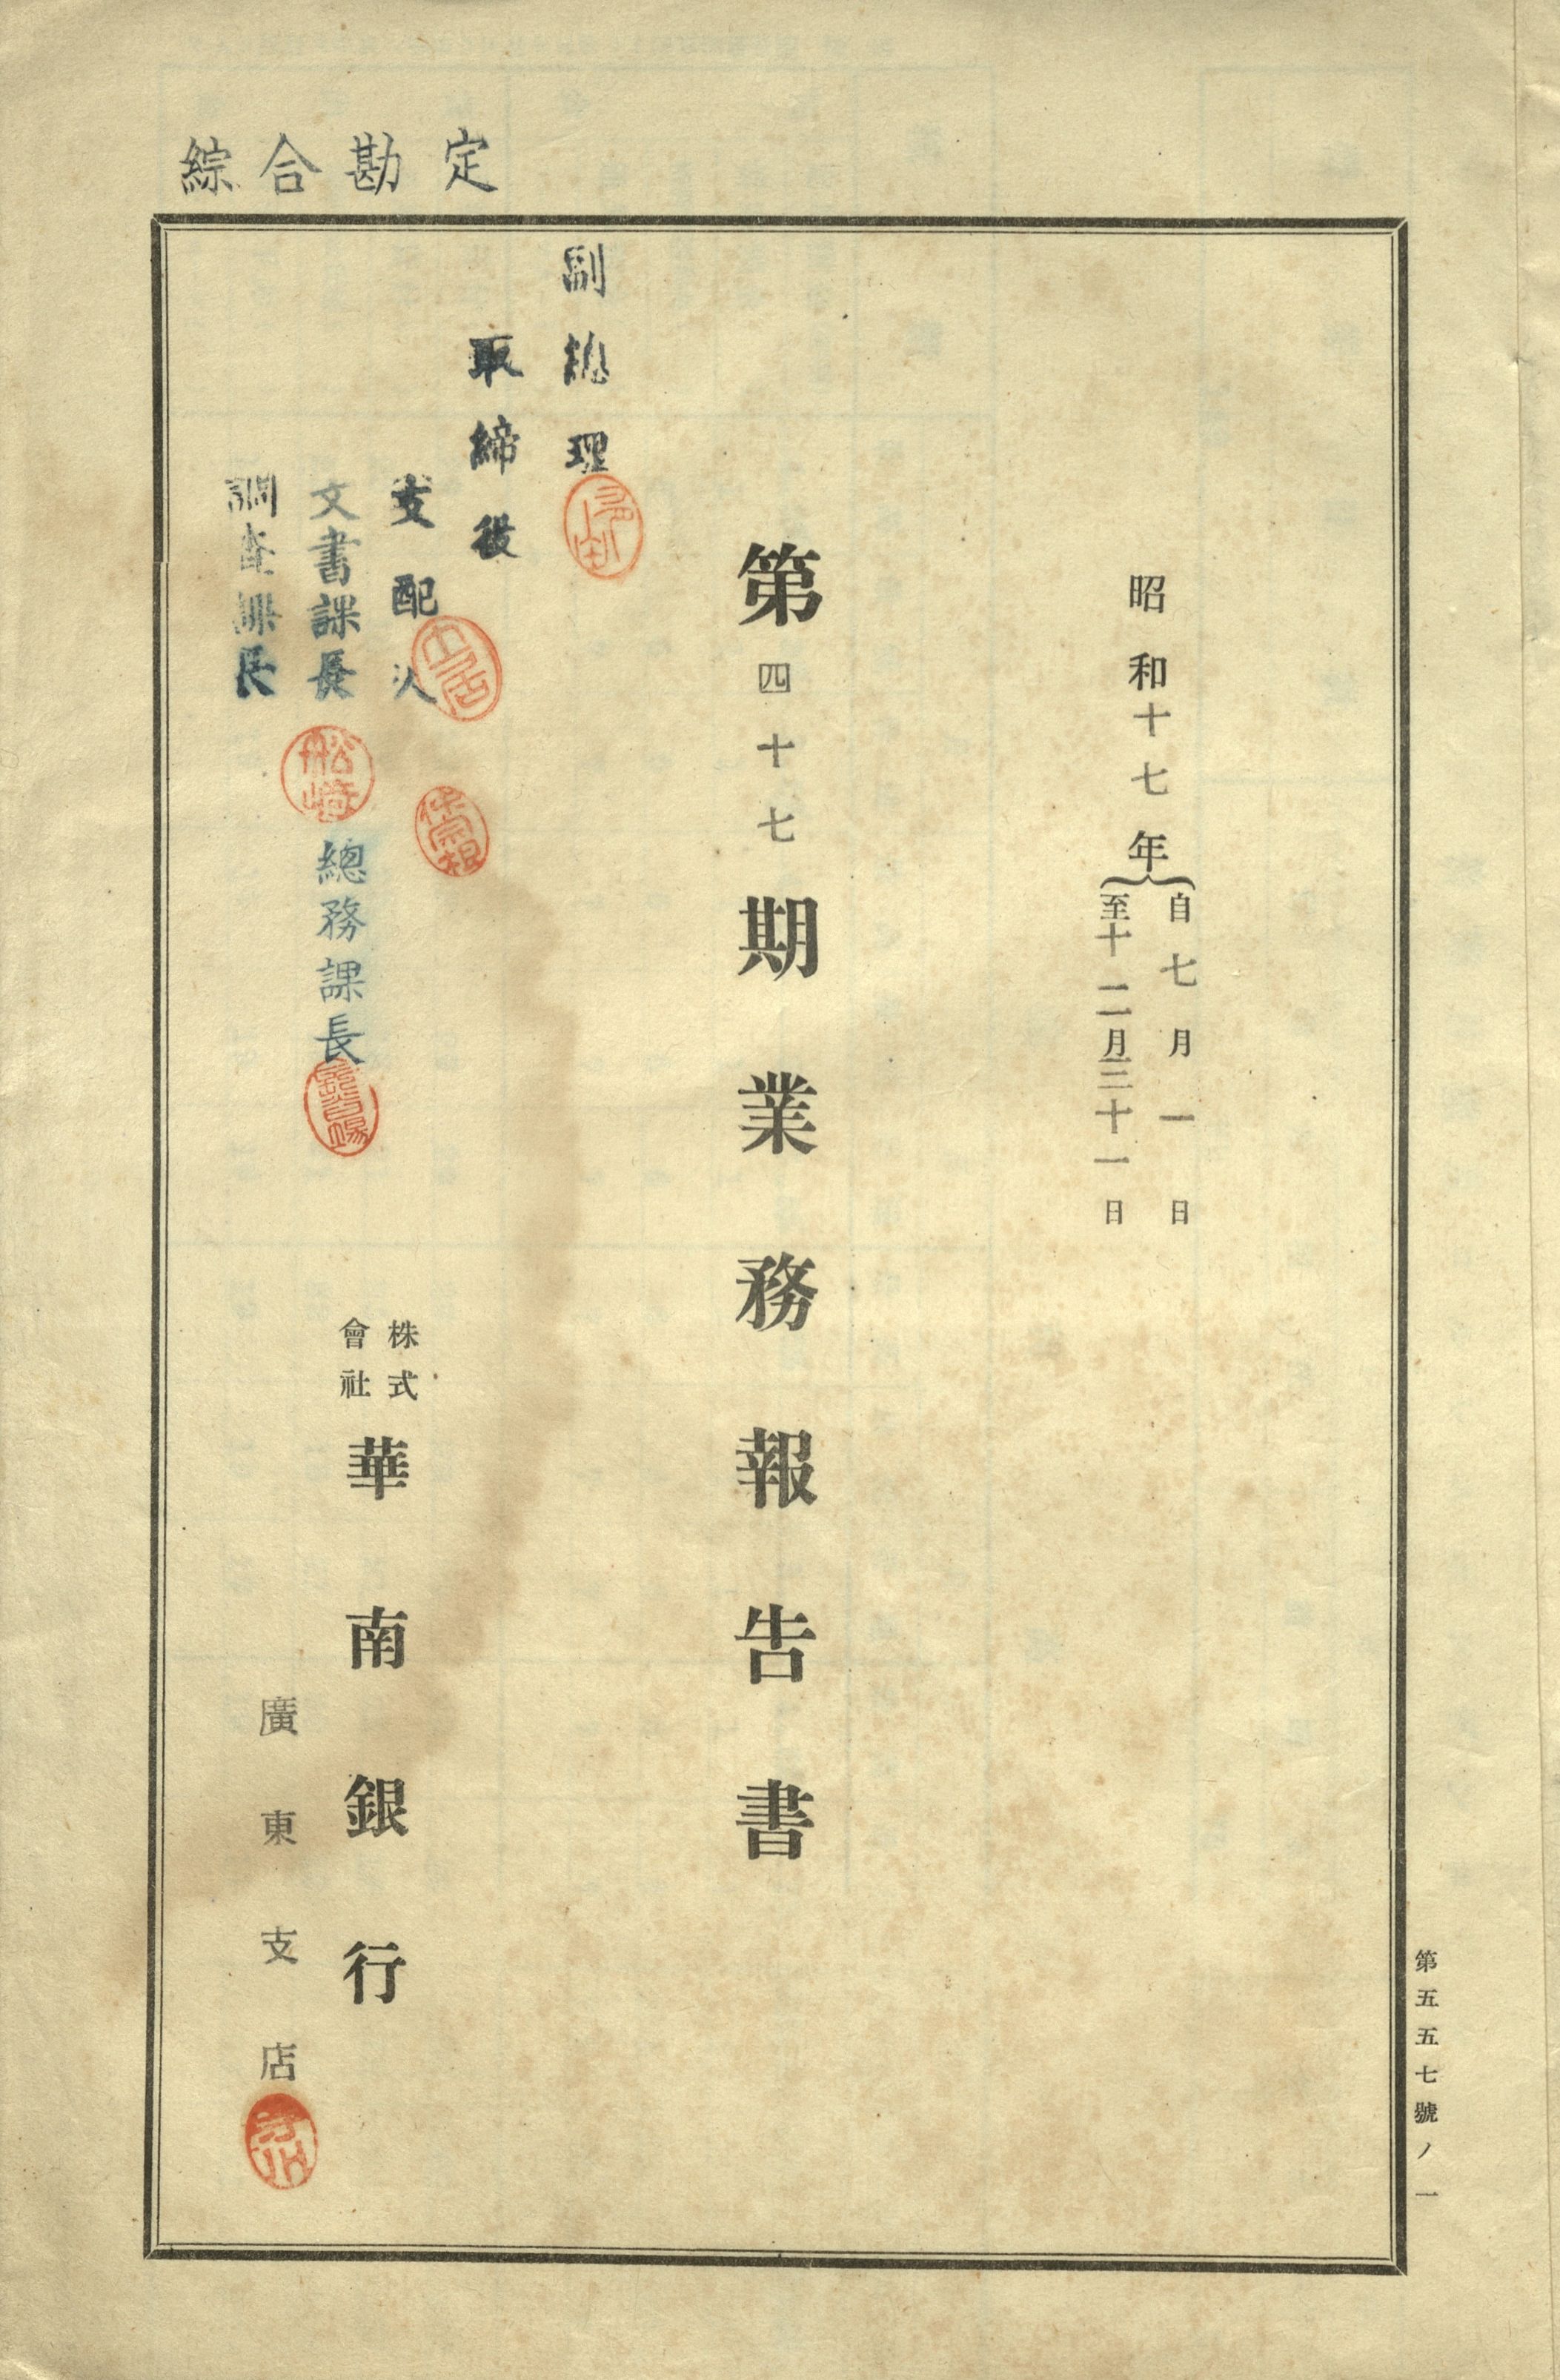 綜合勘定
昭和十七年
自七月一日
至十二月三十一日
第四十七期業務報告書
副總理
取締役
支配人
文書課長
調査課長
松崎
總務課長
株式
會社
華南銀行
廣東支店
第五五七號ノ一